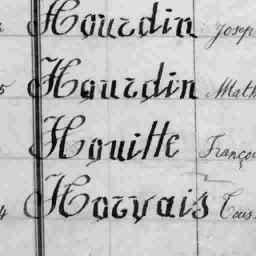 Hourdin Josep
5 Hourdin Math
Houitte Franço
4 Horvais Touss